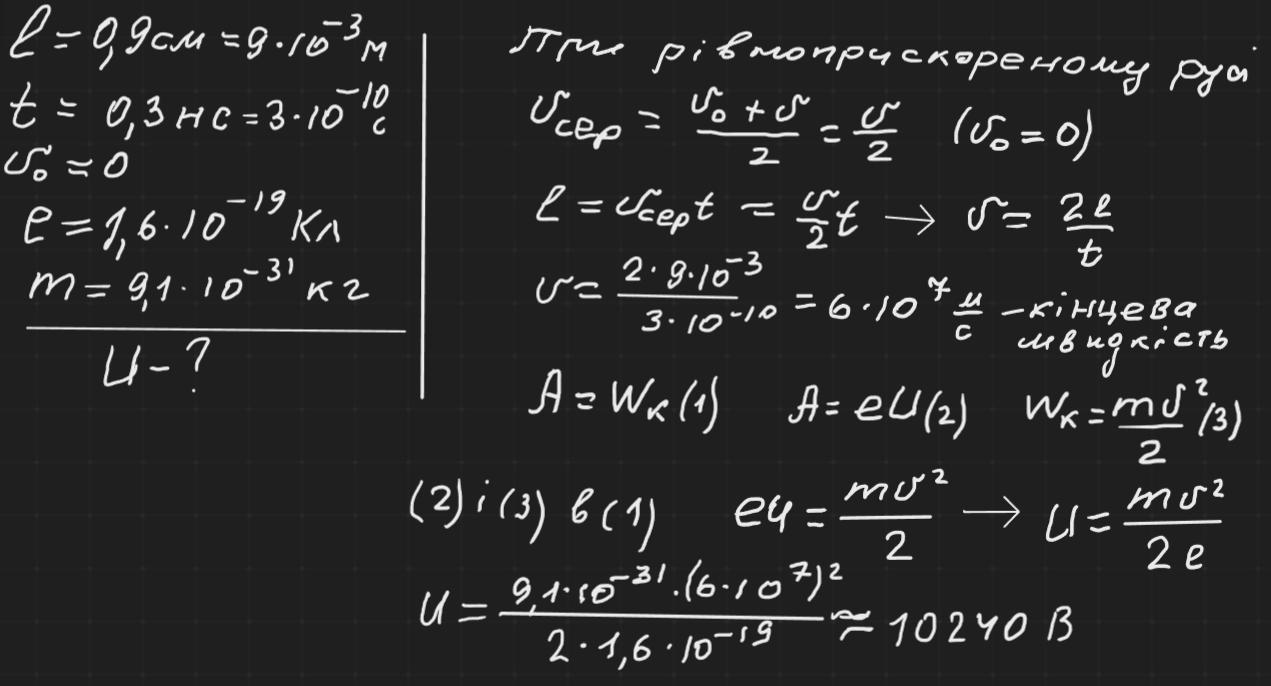 l = 0,9см = 9·10⁻³м
t = 0,3нс = 3·10⁻¹⁰с
υ₀ = 0
e = 1,6·10⁻¹⁹ Кл
m = 9,1·10⁻³¹ кг
U - ?
При рівноприскореному русі
υсер = (υ₀ + υ)/2 = υ/2 (υ₀ = 0)
l = υсер t = υ/2 t → υ = 2l/t
υ = (2·9·10⁻³)/(3·10⁻¹⁰) = 6·10⁷ м/с – кінцева
швидкість
A = Wк (1) A = eU (2) Wк = mυ²/2 (3)
(2) і (3) в (1) eU = mυ²/2 → U = mυ²/2e
U = (9,1·10⁻³¹·(6·10⁷)²)/(2·1,6·10⁻¹⁹) ≈ 10240 В